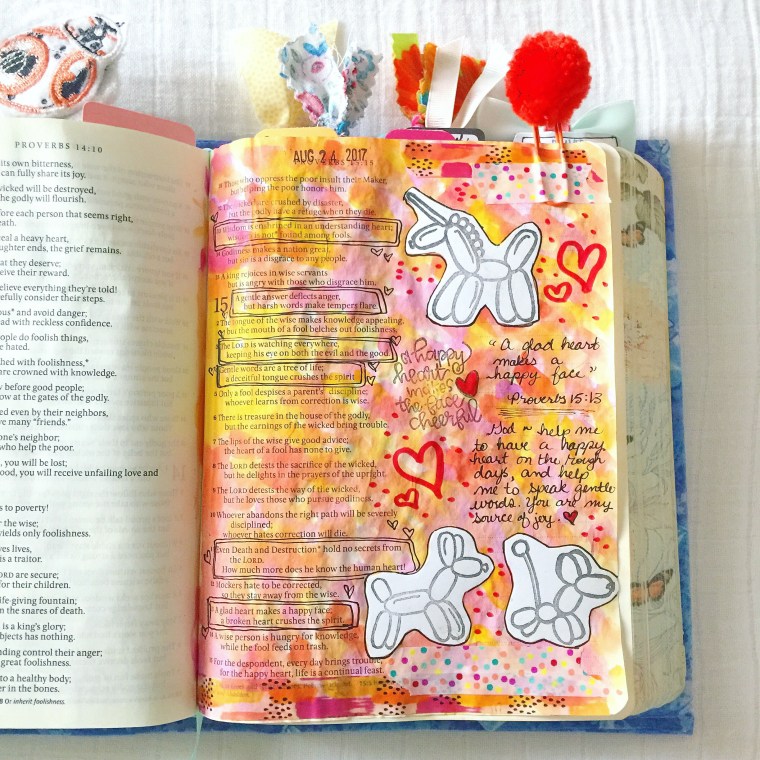 PROVERBS 14:10
its own bitterness,
can fully share its joy.
wicked will be destroyed,
he godly will flourish.
ore each person that seems right,
eath.
eal a heavy heart,
ughter ends, the grief remains.
at they deserve;
eive their reward.
elieve everything they're told!
efully consider their steps.
ous* and avoid danger;
ad with reckless confidence.
ople do foolish things,
e hated.
hed with foolishness,*
are crowned with knowledge.
y before good people;
ow at the gates of the godly.
ed even by their neighbors,
ve many "friends."
one's neighbor;
who help the poor.
, you will be lost;
ood, you will receive unfailing love and
s to poverty!
r the wise;
yields only foolishness.
ves lives,
is a traitor.
ORD are secure;
for their children.
life-giving fountain;
n the snares of death.
is a king's glory;
bjects has nothing.
nding control their anger;
great foolishness.
to a healthy body;
er in the bones.
Or inherit foolishness.
AUG 24 2017
31 Those who oppress the poor insult their Maker,
but helping the poor honors him.
The wicked are crushed by disaster,
but the godly have a refuge when they die.
Wisdom is enshrined in an understanding heart;
wisdom is not found among fools.
Godliness makes a nation great,
but sin is a disgrace to any people.
35 A king rejoices in wise servants
but is angry with those who disgrace him.
15 A gentle answer deflects anger,
but harsh words make tempers flare.
2 The tongue of the wise makes knowledge appealing,
but the mouth of a fool belches out foolishness.
3 The LORD is watching everywhere,
keeping his eye on both the evil and the good.
Gentle words are a tree of life;
a deceitful tongue crushes the spirit.
5 Only a fool despises a parent's discipline;
whoever learns from correction is wise.
6 There is treasure in the house of the godly,
but the earnings of the wicked bring trouble.
7 The lips of the wise give good advice;
the heart of a fool has none to give.
8 The LORD detests the sacrifice of the wicked,
but he delights in the prayers of the upright.
9 The LORD detests the way of the wicked,
but he loves those who pursue godliness.
10 Whoever abandons the right path will be severely
disciplined;
whoever hates correction will die.
Even Death and Destruction* hold no secrets
from the LORD.
How much more does he know the human heart!
12 Mockers hate to be corrected,
so they stay away from the wise.
A glad heart makes a happy face;
a broken heart crushes the spirit.
14 A wise person is hungry for knowledge,
while the fool feeds on trash.
15 For the despondent, every day brings trouble;
for the happy heart, life is a continual feast.
a happy
heart
makes
the face
cheerful
"A glad heart
makes a
happy face"
Proverbs 15:13
God ~ help me
to have a happy
heart on the rough
days, and help
me to speak gentle
words. You are my
source of joy.